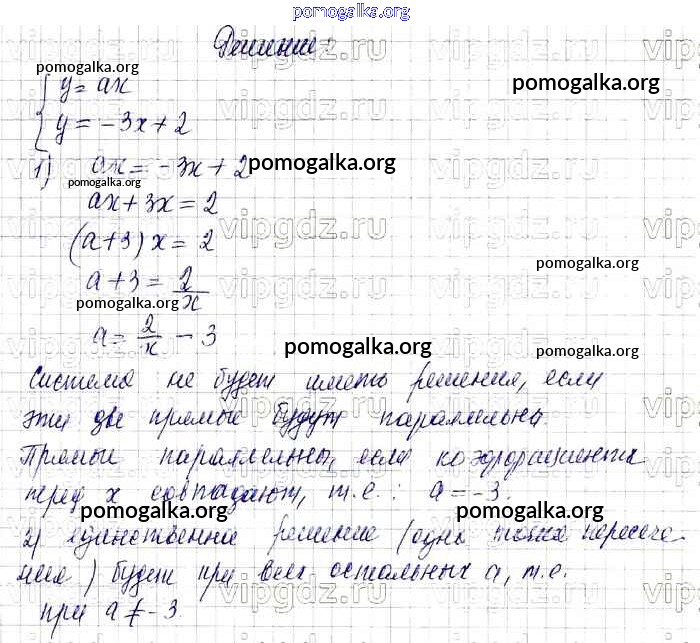 pomogalka.org
Решение:
pomogalka.org
{ y = ax
pomogalka.org
{ y = -3x + 2
1) ax = -3x + 2
pomogalka.org
pomogalka.org
ax + 3x = 2
(a+3) x = 2
pomogalka.org
a + 3 = 2/x
pomogalka.org
a = 2/x - 3
pomogalka.org
Система не будет иметь решения, если
эти две прямые будут параллельны.
Прямые параллельны, если коэффициенты
перед x совпадают, т.е.: a = -3.
pomogalka.org
pomogalka.org
2) единственное решение (одна точка пересече-
ния) будет при всех остальных a, т.е.
при a ≠ -3
vipgdz.ru